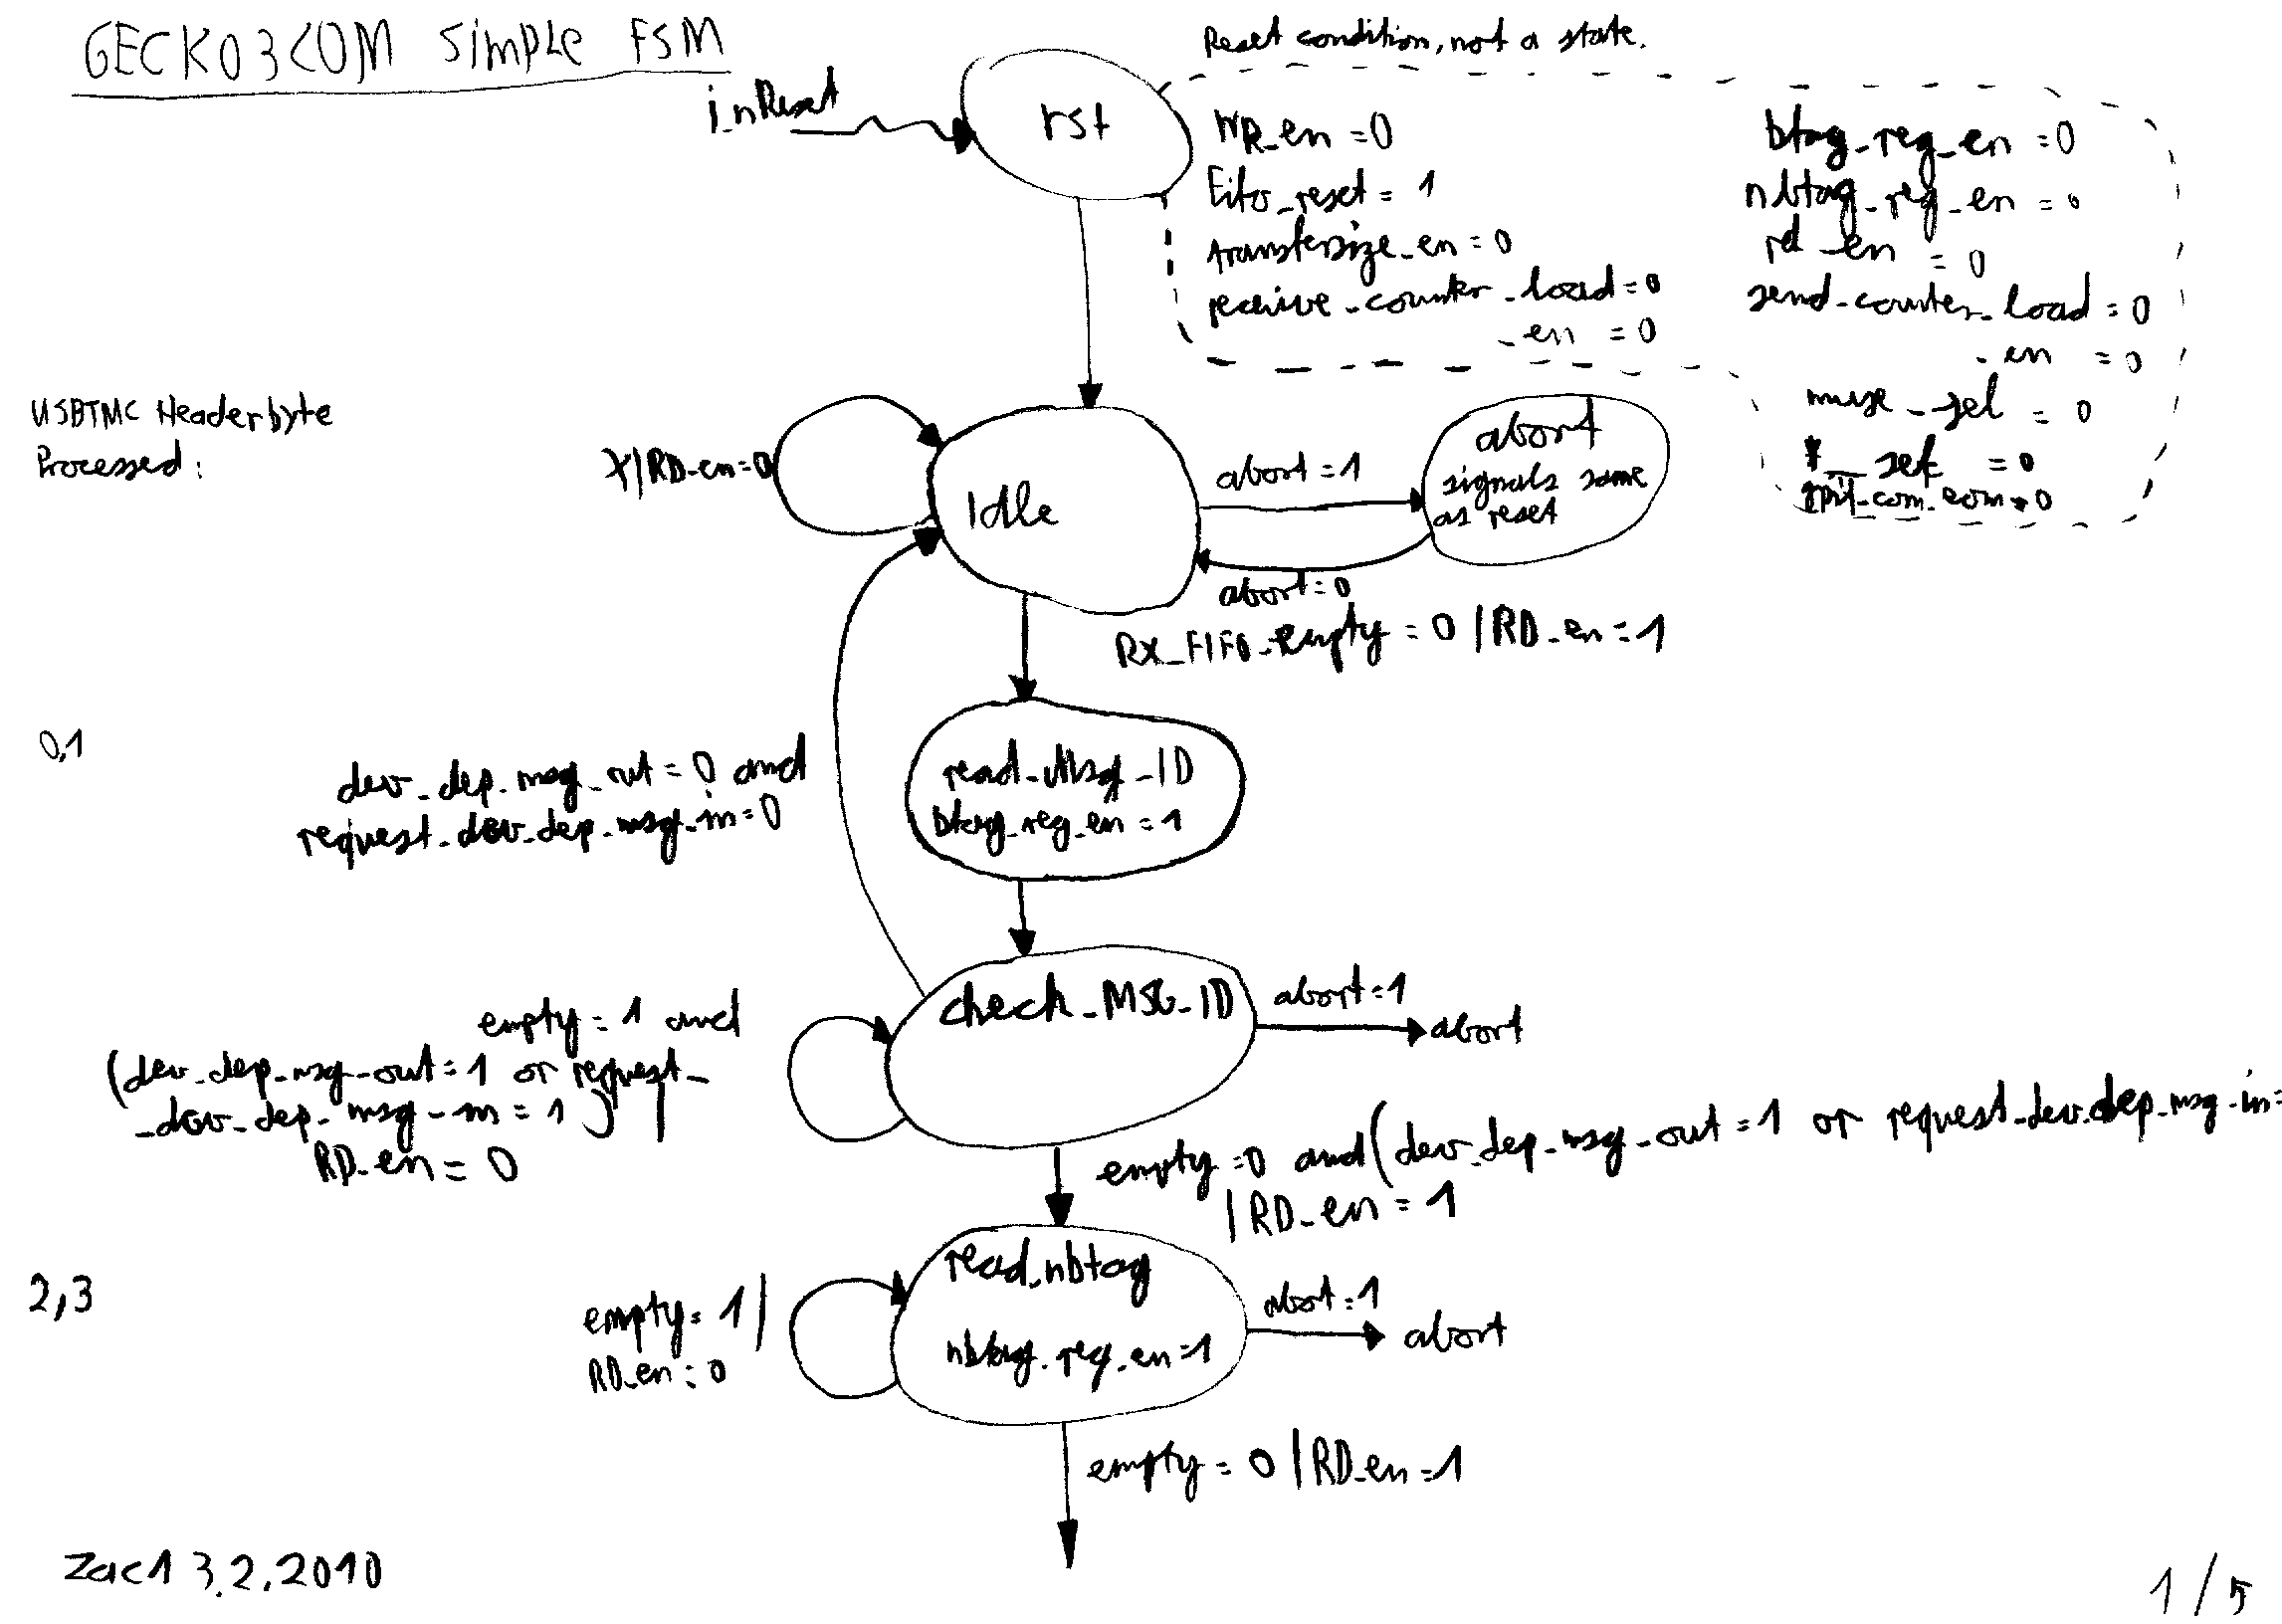 GECKO3COM simple FSM
Reset condition, not a state.
i_nReset
rst
WR_en = 0
Fifo_reset = 1
transfersize_en = 0
receive_counter_load = 0
_en = 0
btag_reg_en = 0
nbtag_reg_en = 0
rd_en = 0
send_counter_load = 0
_en = 0
mux_sel = 0
= 0
USBTMC Headerbyte
Processed:
RD_en=0
Idle
abort=1
abort
signals same
as reset
abort=0
RX_FIFO_empty = 0 | RD_en=1
0,1
dev_dep_msg_out = 0 and
request_dev_dep_msg_in=0
read_Msg_ID
btag_reg_en = 1
empty = 1 and
(dev_dep_msg_out = 1 or request_
_dev_dep_msg_in = 1) |
RD_en = 0
check_MSG_ID
abort=1
abort
empty=0 and (dev_dep_msg_out = 1 or request_dev_dep_msg_in=
| RD_en = 1
2,3
empty = 1 |
RD_en = 0
read_nbtag
nbtag_reg_en=1
abort=1
abort
empty = 0 | RD_en=1
zac1 3.2.2010
1/5